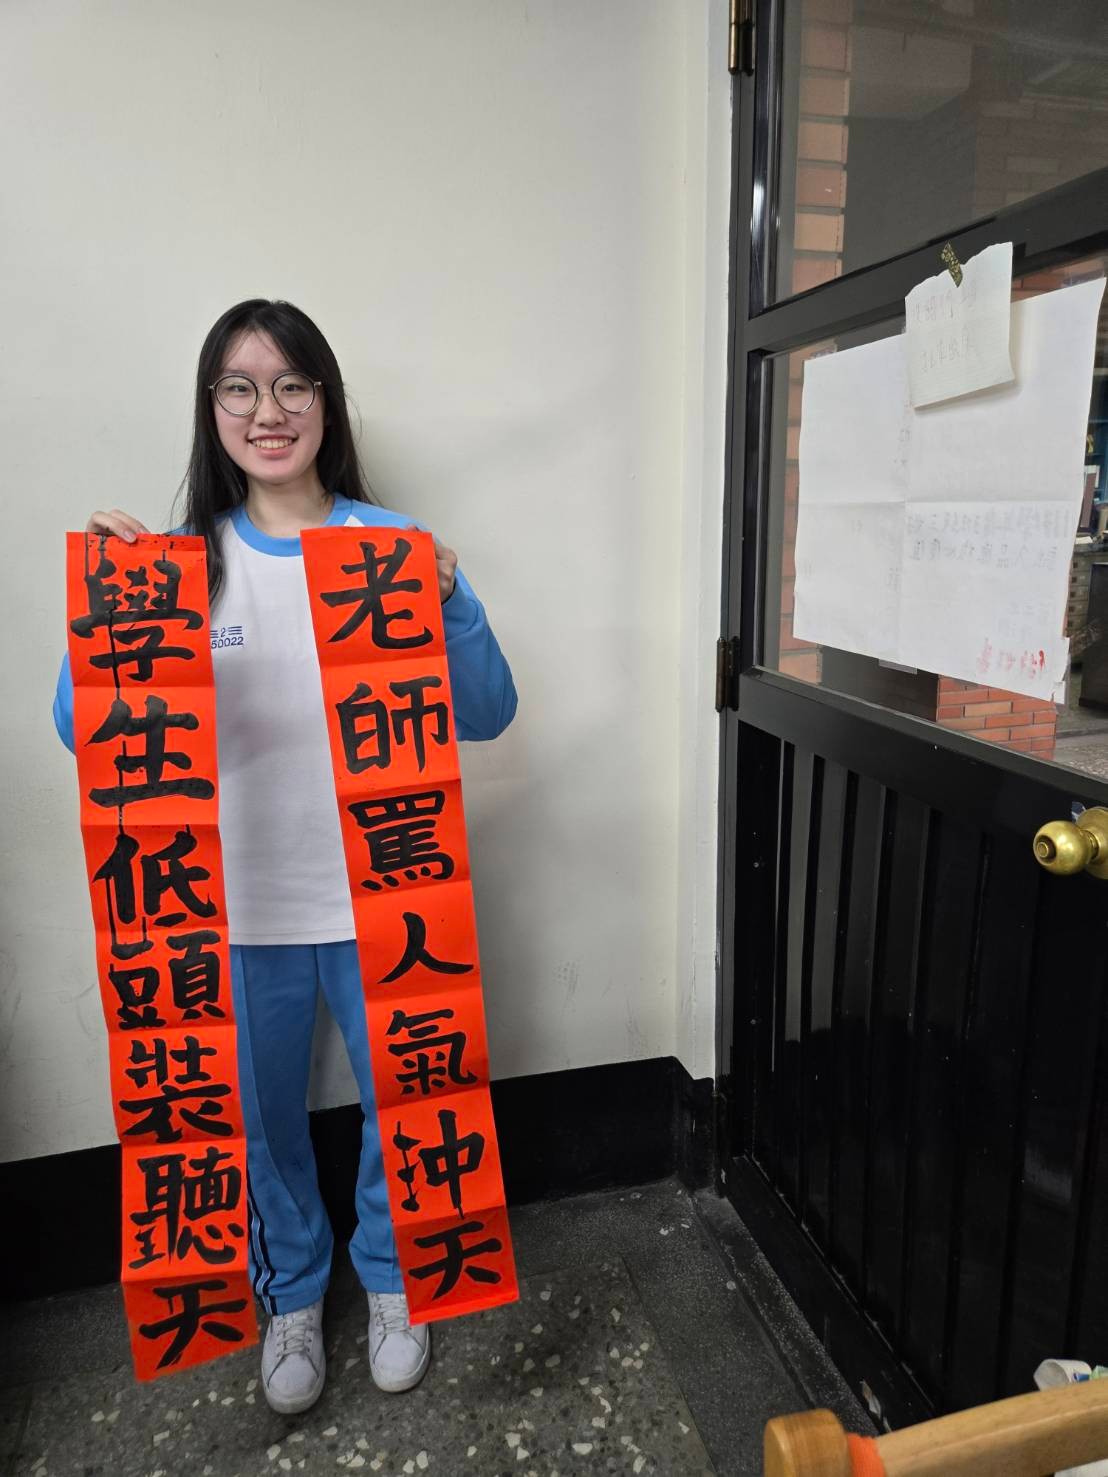 老師罵人氣沖天
學生低頭裝聽天
2
50022